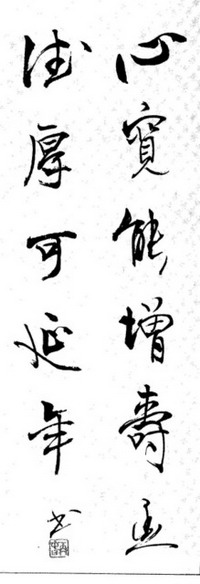 心寬能增壽
德厚可延年
书